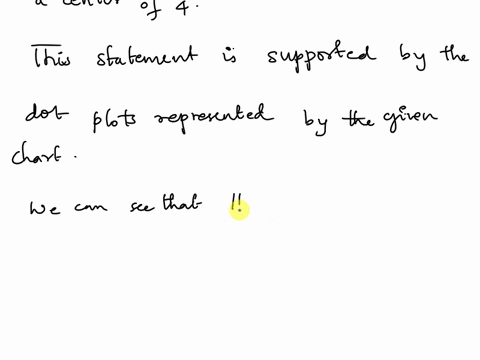 a center of 4.
This statement is supported by the
dot plots represented by the given
chart.
We can see that !!